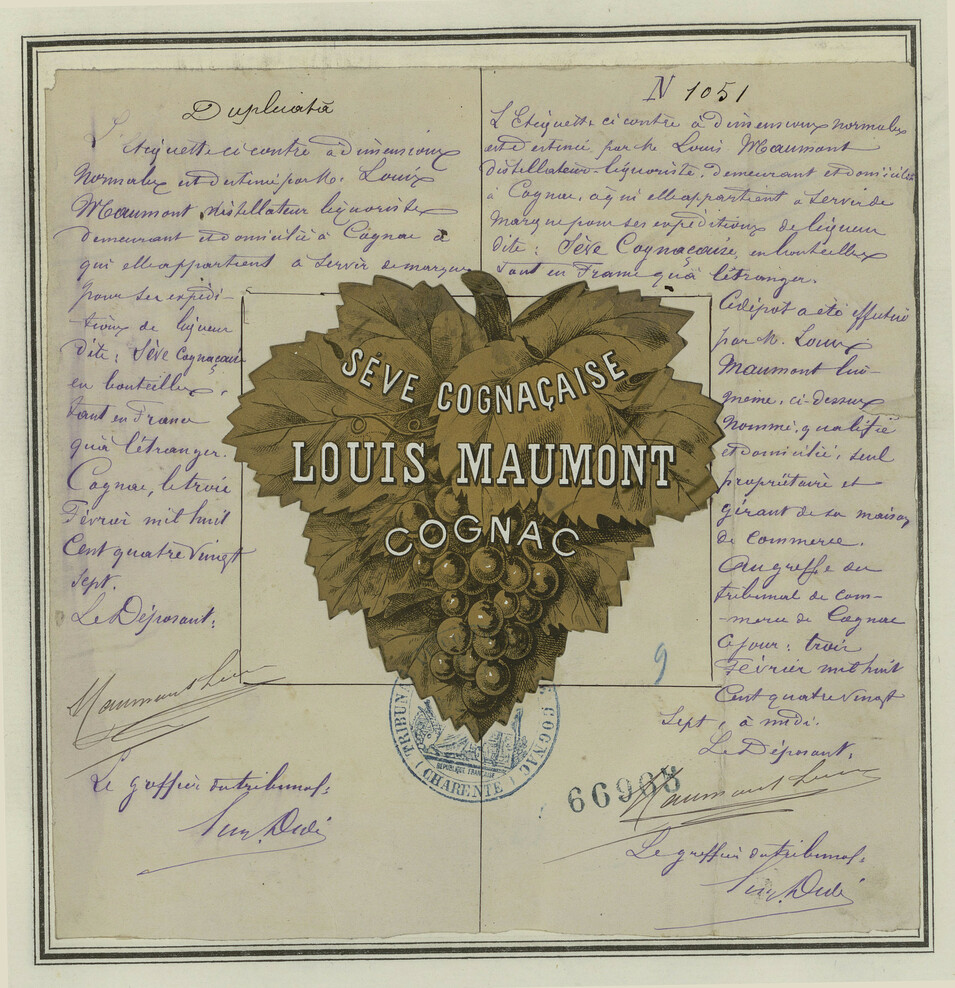 Duplicata
L'étiquette ci contre à dimensions
normales est destinée par M. Louis
Maumont distillateur liquoriste
demeurant et domicilié à Cognac à
qui elle appartient à servir de marque
pour ses expédi-
tions de liqueur
dite : Sève Cognaçaise
en bouteilles,
tant en France
qu'à l'étranger.
Cognac, le trois
Février mil huit
Cent quatre vingt
sept.
Le Déposant :
Maumont Louis
Le greffier du tribunal :
N 1051
L'Etiquette ci contre à dimensions normales
est destinée, par M Louis Maumont
distillateur-liquoriste, demeurant et domicilié
à Cognac, à qui elle appartient à servir de
marque pour ses expéditions de liqueur
dite : Sève Cognaçaise, en bouteilles
tant en France qu'à l'étranger.
Ce dépôt a été effectué
par M. Louis
Maumont lui-
même, ci-dessus
nommé, qualifié
et domicilié, seul
propriétaire et
gérant de sa maison
de commerce.
Au greffe du
tribunal de com-
-merce de Cognac
ce jour : trois
Février mil huit
Cent quatre vingt
Sept, à midi.
Le Déposant,
Maumont Louis
Le greffier du tribunal :
SÈVE COGNAÇAISE
LOUIS MAUMONT
COGNAC
9
TRIBUNAL
COGNAC
RÉPUBLIQUE FRANÇAISE
(CHARENTE)
66968